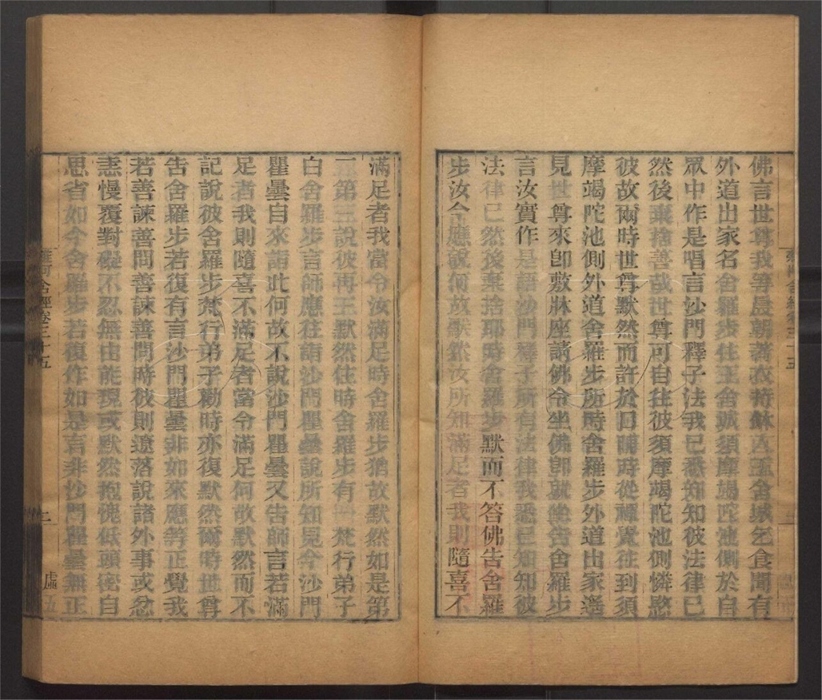 佛言世尊我等晨朝著衣持鉢入王舍城乞食聞有
外道出家名舍羅步住王舍城須摩竭陀池側於自
眾中作是唱言沙門釋子法我已悉知知彼法律已
然後棄捨善哉世尊可自往彼須摩竭陀池側憐愍
彼故爾時世尊默然而許於日晡時從禪覺往到須
摩竭陀池側外道舍羅步所時舍羅步外道出家遙
見世尊來即敷牀座請佛令坐佛即就坐告舍羅步
言汝實作是語沙門釋子所有法律我悉已知知彼
法律已然後棄捨耶時舍羅步默而不答佛告舍羅
步汝今應說何故默然汝所知滿足者我則隨喜不
滿足者我當令汝滿足時舍羅步猶故默然如是第
二第三說彼再三默然住時舍羅步有一梵行弟子
白舍羅步言師應往詣沙門瞿曇說所知見今沙門
瞿曇自來詣此何故不說沙門瞿曇又告師言若滿
足者我則隨喜不滿足者當令滿足何故默然而不
記說彼舍羅步梵行弟子勸時亦復默然爾時世尊
告舍羅步若復有言沙門瞿曇非如來應等正覺我
若善諫善問善諫善問時彼則遼落說諸外事或忿
恚慢覆對礙不忍無由能現或默然抱愧低頭密自
思省如今舍羅步若復作如是言非沙門瞿曇無正
雜阿含經卷三十五
二
虛五